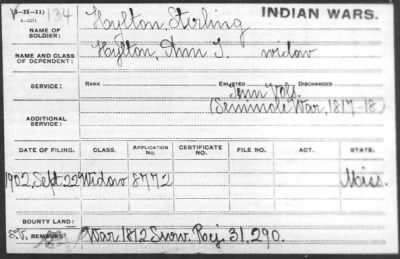 V-II-III) 134 INDIAN WARS.
NAME OF SOLDIER: Haylton, Sterling
NAME AND CLASS OF DEPENDENT: Haylton, Ann T. widow
SERVICE: RANK ENLISTED DISCHARGED
Tenn Vols.
(Seminole War, 1817-18)
ADDITIONAL SERVICE:
DATE OF FILING. CLASS. APPLICATION NO. CERTIFICATE NO. FILE NO. ACT. STATE.
1902, Sept. 22 Widow 8772 Miss.
BOUNTY LAND:
S.V. REMARKS: War 1812 Surv. Rej. 31,290.